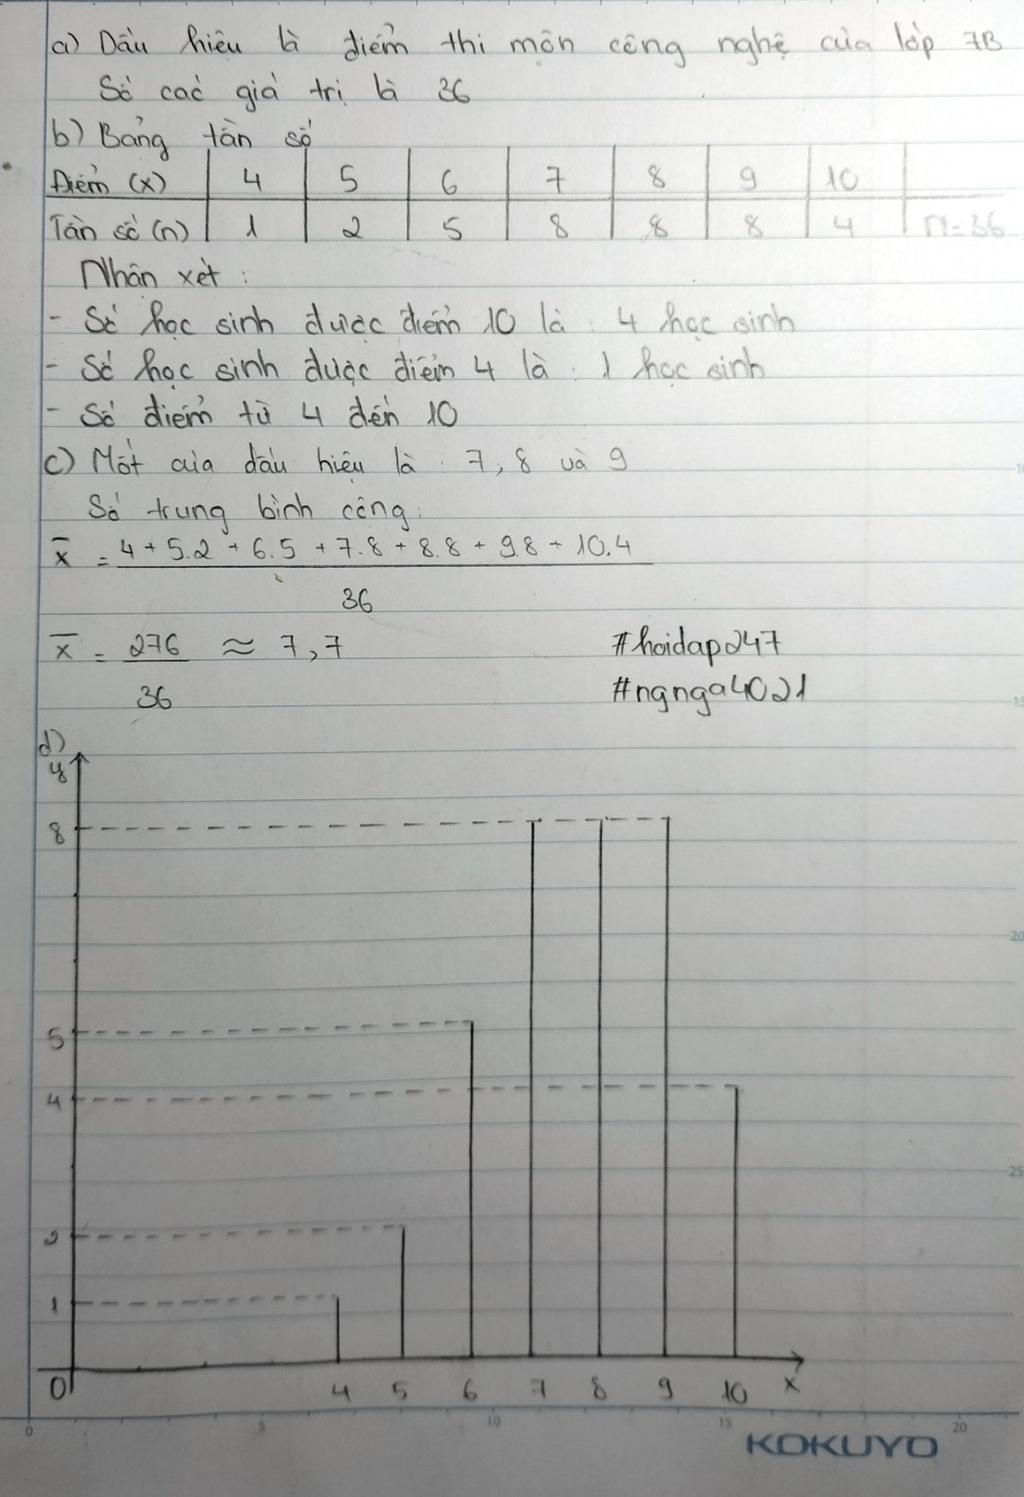 a) Dấu hiệu là điểm thi môn công nghệ của lớp 7B
Số các giá trị là 36
b) Bảng tần số
Điểm (x) 4 5 6 7 8 9 10
Tần số (n) 1 2 5 8 8 8 4 N=36
Nhận xét :
- Số học sinh được điểm 10 là : 4 học sinh
- Số học sinh được điểm 4 là : 1 học sinh
- Số điểm từ 4 đến 10
c) Mốt của dấu hiệu là : 7, 8 và 9
Số trung bình cộng:
x̄ = 4 + 5.2 + 6.5 + 7.8 + 8.8 + 9.8 + 10.4
36
x̄ = 276 ≈ 7,7 #hoidap247
36 #ngnga4021
d)
y
8
5
4
2
1
0 4 5 6 7 8 9 10 x
0 5 10 15 20
KOKUYO
10
15
20
25